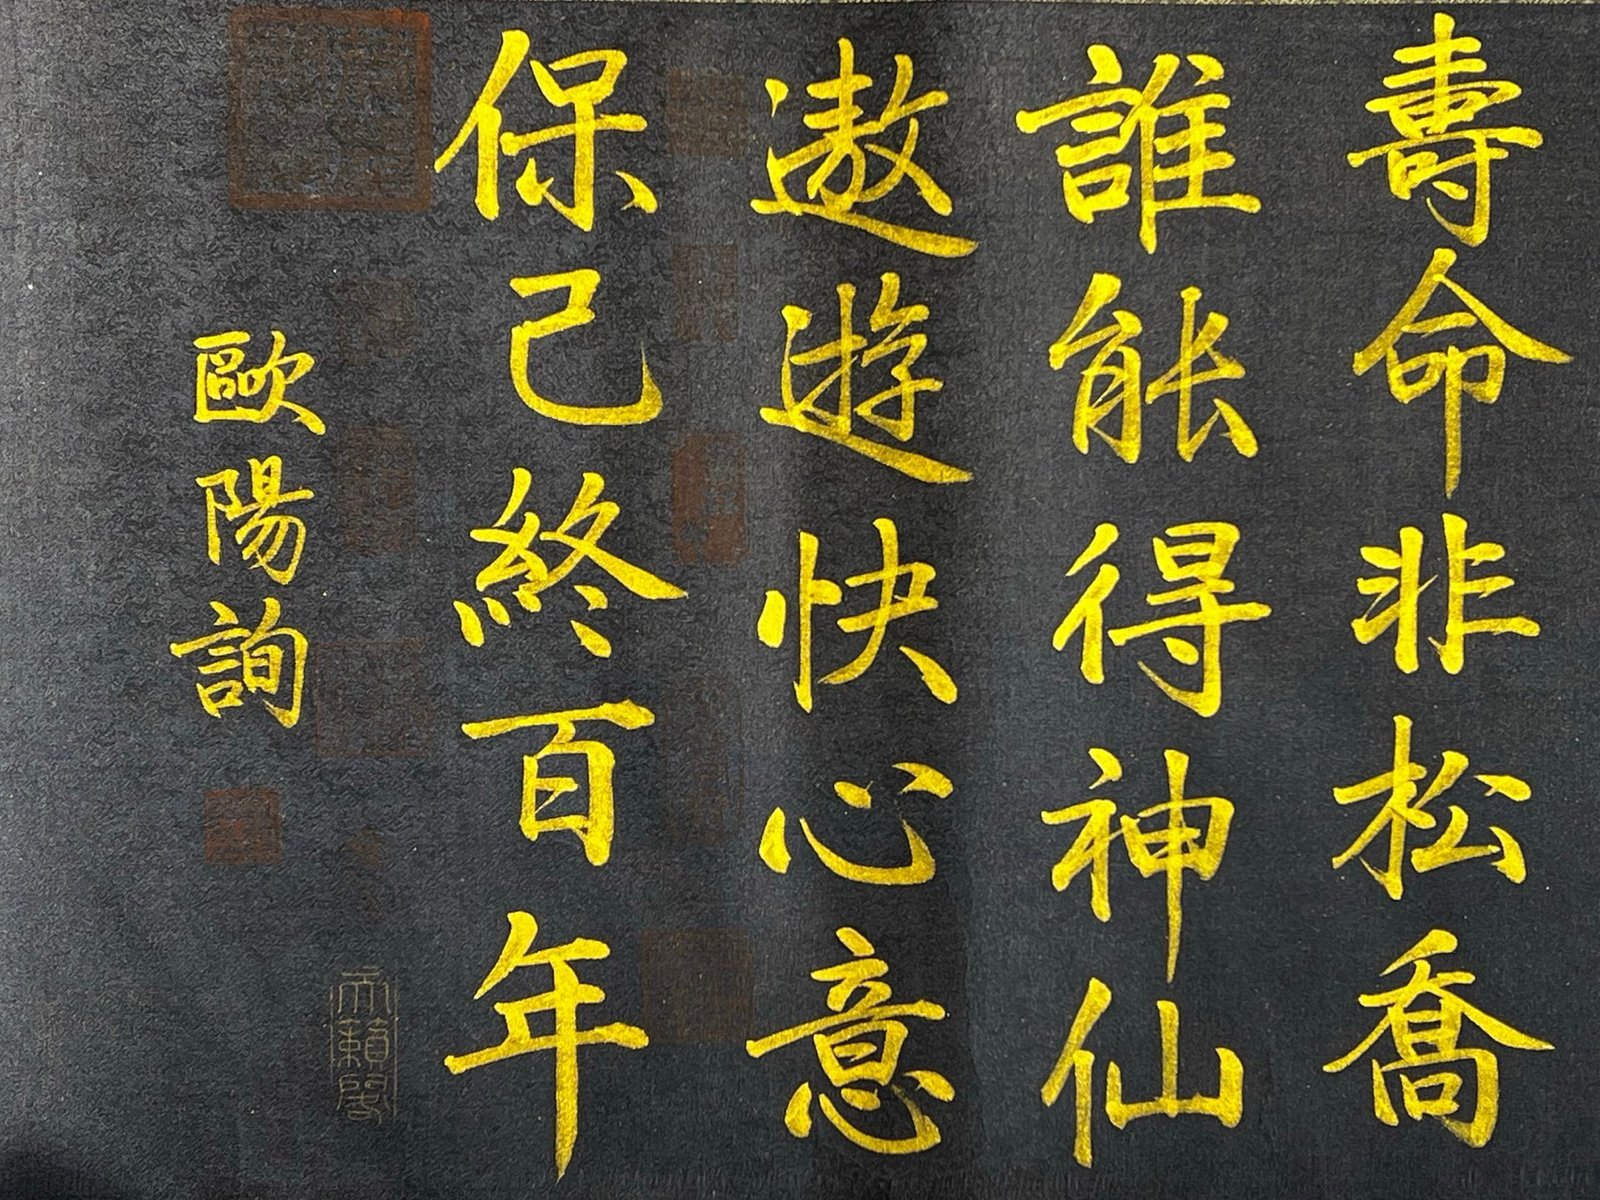 壽命非松喬
誰能得神仙
遨遊快心意
保己終百年
歐陽詢